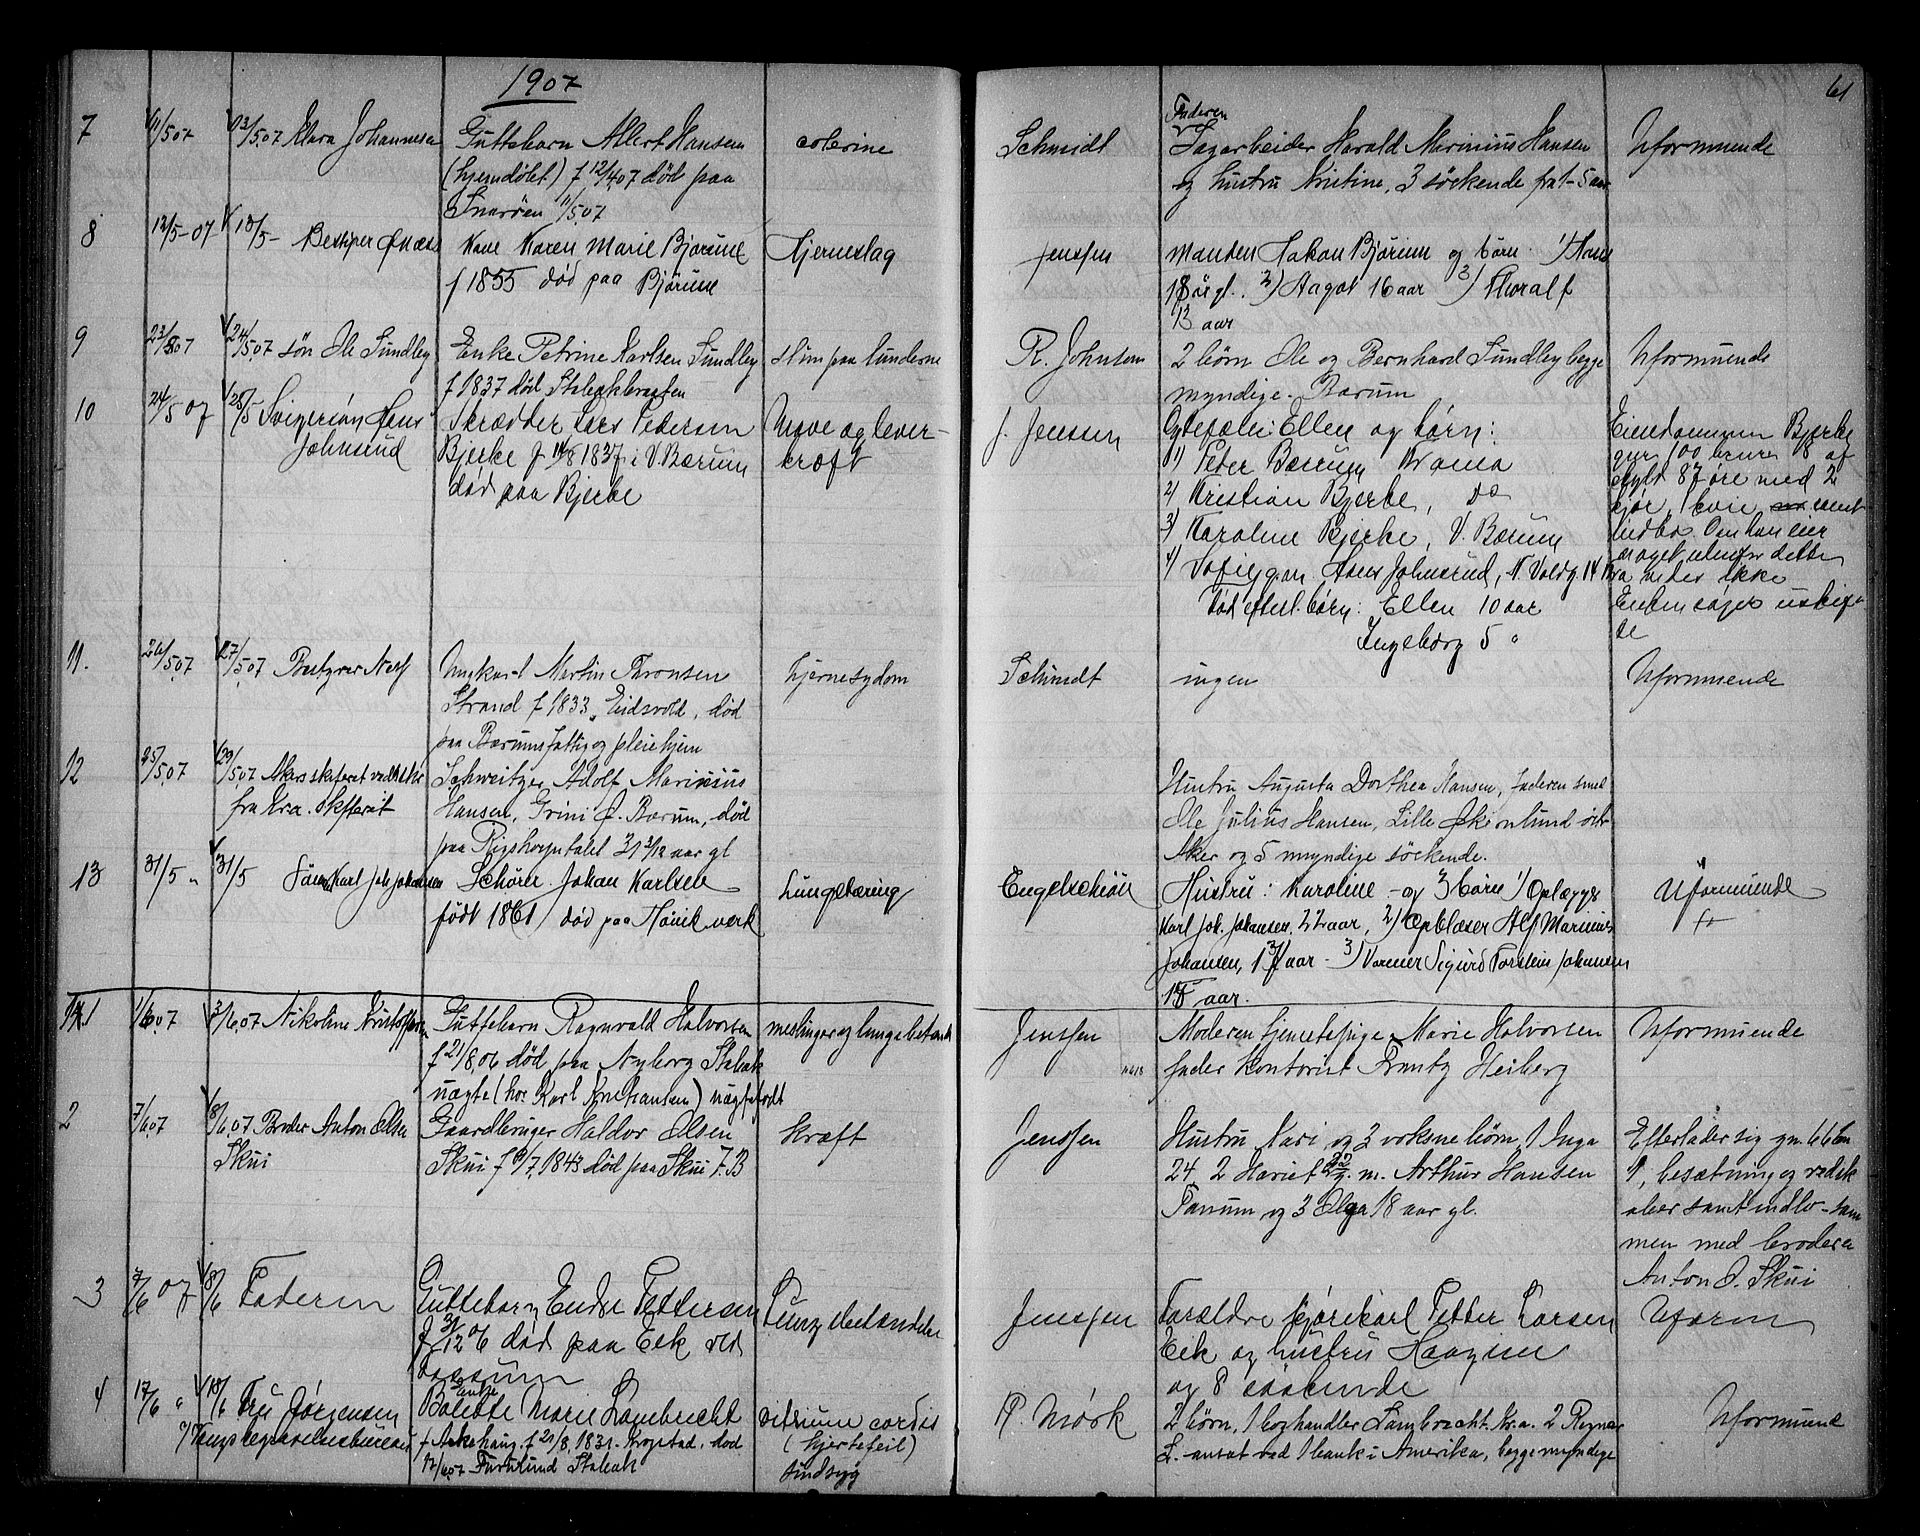 1907
61
7 11/5 07 13/5 07 Klara Johannesen
Guttebarn Albert Hansen
(hjemdøbt) f 12/4 07 død paa
Snarøen 11/5 07
colerine
Schmidt
Faderen
Sagarbeider Harald Marinius Hansen
og hustru Kristine, 3 söskende fra 1-5 aar
Uformuende
8 12/5-07 13/5-
Kone Karen Marie Bjørum
f 1855 død paa Bjørum
Hjerneslag
Jenssen
Manden Hakon Bjørum og børn 1) Hans
18 år gl. 2) Aagot 16 aar 3) Thoralf
13 aar
9 23/5 07 24/5 07 søn Ole Sundby
Enke Petrine Karlsen Sundby
f 1837 død Stabækbraaten
slim paa lungerne
R. Johnsen
2 børn Ole og Bernhard Sundby begge
myndige. Bærum
Uformuende
10 24/5 07 25/5 Svigersön Hans
Johnsrud
Skrædder Lars Pedersen
Bjerke f 14/8 1837 i V. Bærum
død paa Bjerke
Mave og lever-
kræft
J. Jenssen
Gjtefælle: Ellen og børn:
1) Peter Bærum Drama
2) Kristian Bjerke, do
3) Karoline Bjerke, V. Bærum
4) Sofie g.m. Hans Johnsrud, N. Voldg. 14 Kra
død efterl. børn: Ellen 10 aar
Ingeborg 5 "
Eiendommen Bjerke
gnr 100 brnr 8 af
skyld 87 øre med 2
kjør, 1 kvie, samt
indbo. Om han eier
noget udenfor dette
vides ikke
Enken søger uskif-
te
11. 26/5 07 27/5 07 Bestyrer Næss
Ungkarl Martin Aronsen
Strand f 1833, Eidsvold, død
paa Bærums fattig og pleiehjem
hjernesygdom
Schmidt
ingen
Uformuende
12 25/5 07 29/5 07 Akers skifteret
fra Kra. Skifterit
Schweitzer Adolf Marinius
Hansen, Grini Ø. Bærum, død
paa Rigshospitalet 31 3/12 aar gl
Hustru Augusta Dorthea Hansen, faderen smed
Ole Julius Hansen, Lille Økernlund östr
Aker og 5 myndige söskende.
13 31/5 " 31/5 Sön Karl Joh Johansen
Skhører Johan Karlsen
født 1861 død paa Høvik verk
Lungetæring
Engelschiön
Hustru: Karoline - og 3 børn 1) Oplægger
Karl Joh. Johansen 22 aar, 2) Opblæser Alf Marinius
Johansen, 17 aar - 3) Varmer Sigurd Torstein Johansen
15 aar.
Uformuende
1 1/6 07 3/6 07 Nikoline Kristoffersen
Guttebarn Ragnvald Halvorsen
f 21/8 06 død paa Nyborg Stabæk
uægte (hos Karl Kristiansen) uægtefødt
meslinger og lungebetænd
Jenssen
Moderen tjenestepige Marie Halvorsen
fader Kontorist Frantz Heiberg
Uformuende
2 7/6 07 8/6 07 Broder Anton Olsen
Skui
Gaardbruger Haldor Olsen
Skui f /7 1843 død paa Skui V. B
kræft
Jenssen
Hustru Kari og 3 voksne börn, 1 Inga
24, 2 Hariet 22 g. m. Arthur Hansen
Tanum og 3 Olga 18 aar gl.
Efterlader sig gn. 66 bn
9, besætning og redsk
aber samt indbo - sam
men med broderen
Anton O. Skui
3 7/6 07 8/6 Faderen
Guttebarn Einar Pettersen
f 31/12 06 død paa Eek ved
Lungebetændelse
Jenssen
Forældre kjørekarl Petter Larsen
Eek og hustru
og 8 søskende
Uform
4 17/6 " 18/6 Fru Jørgensen
Enke
Bolette Marie Lambrecht
f. 21/8 1831 Krogstad, død
12/6 07 Furulund Stabæk
vitium cordis
(hjertefeil)
sindsyg
P. Mörk
2 børn, 1 boghandler Lambrecht. Kr.a. 2 Regner
L. ansat ved 1 bank i Amerika, begge myndige
Uformuend